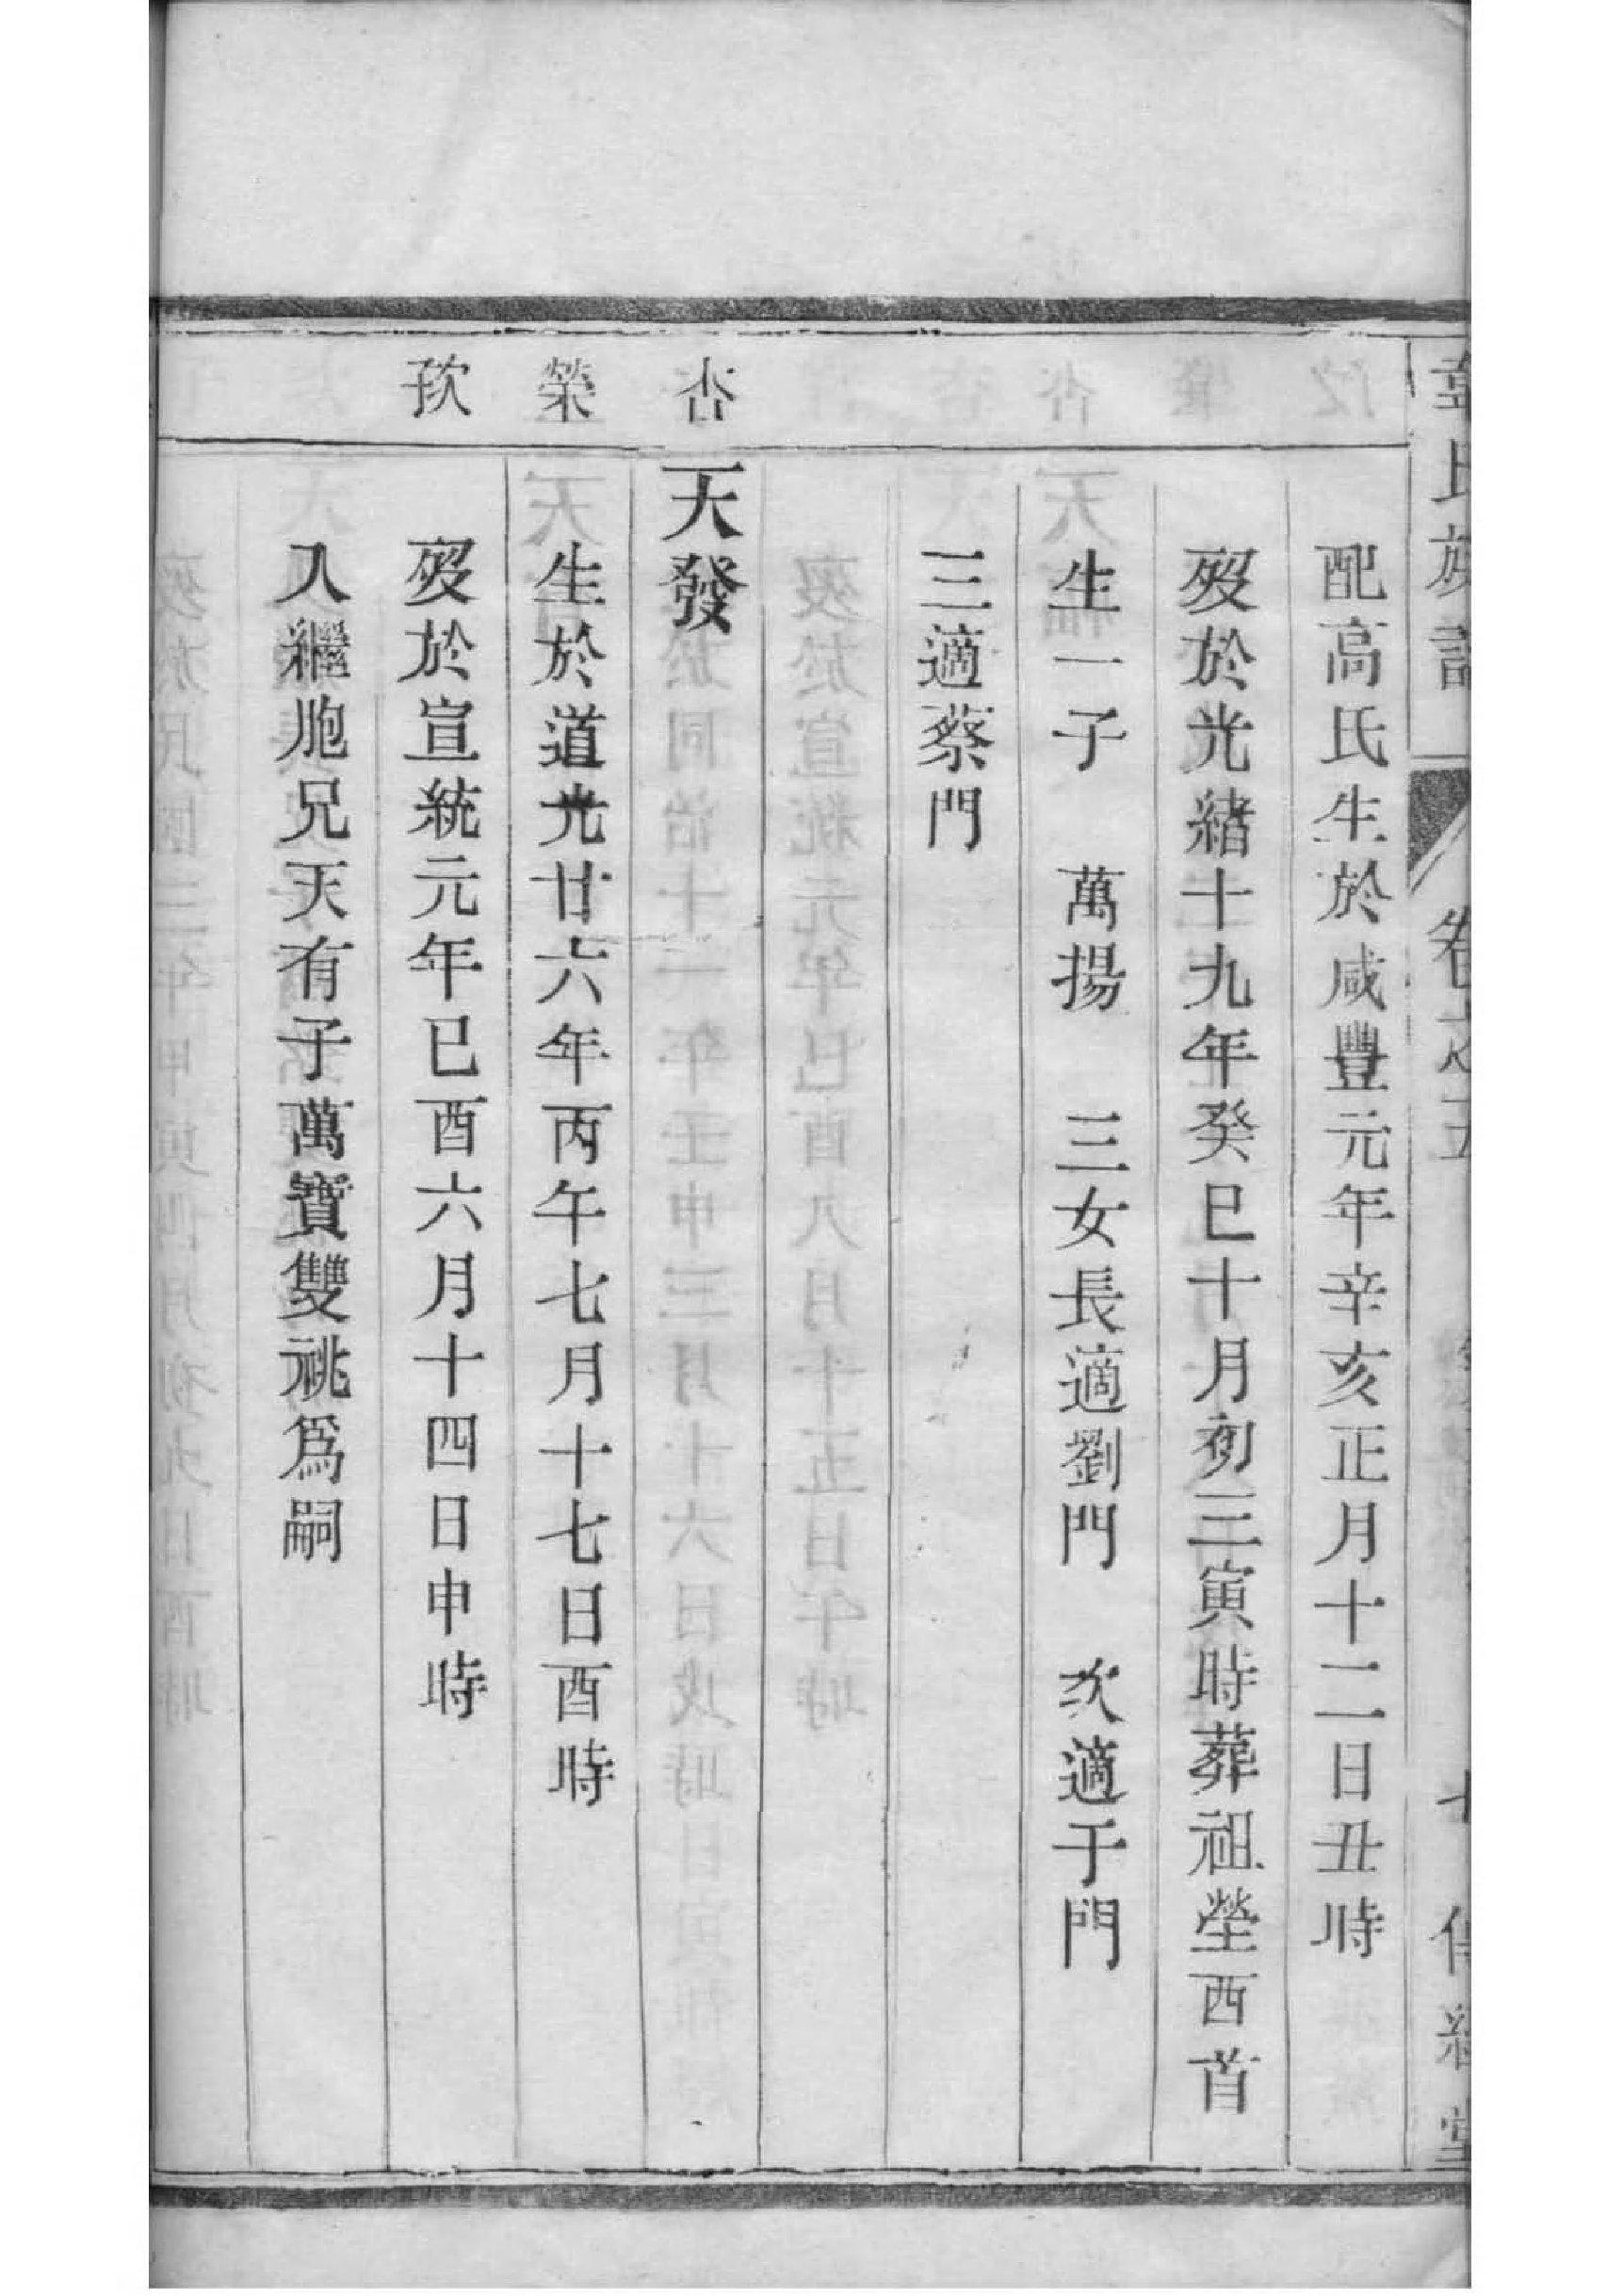 氏族譜 卷之五
配高氏生於咸豐元年辛亥正月十二日丑時
歿於光緒十九年癸巳十月初三寅時葬祖塋西首
生一子 萬揚 三女長適劉門 次適于門
三適蔡門
天發
榮
生於道光廿六年丙午七月十七日酉時
歿於宣統元年已酉六月十四日申時
入繼胞兄天有子萬寶雙祧爲嗣